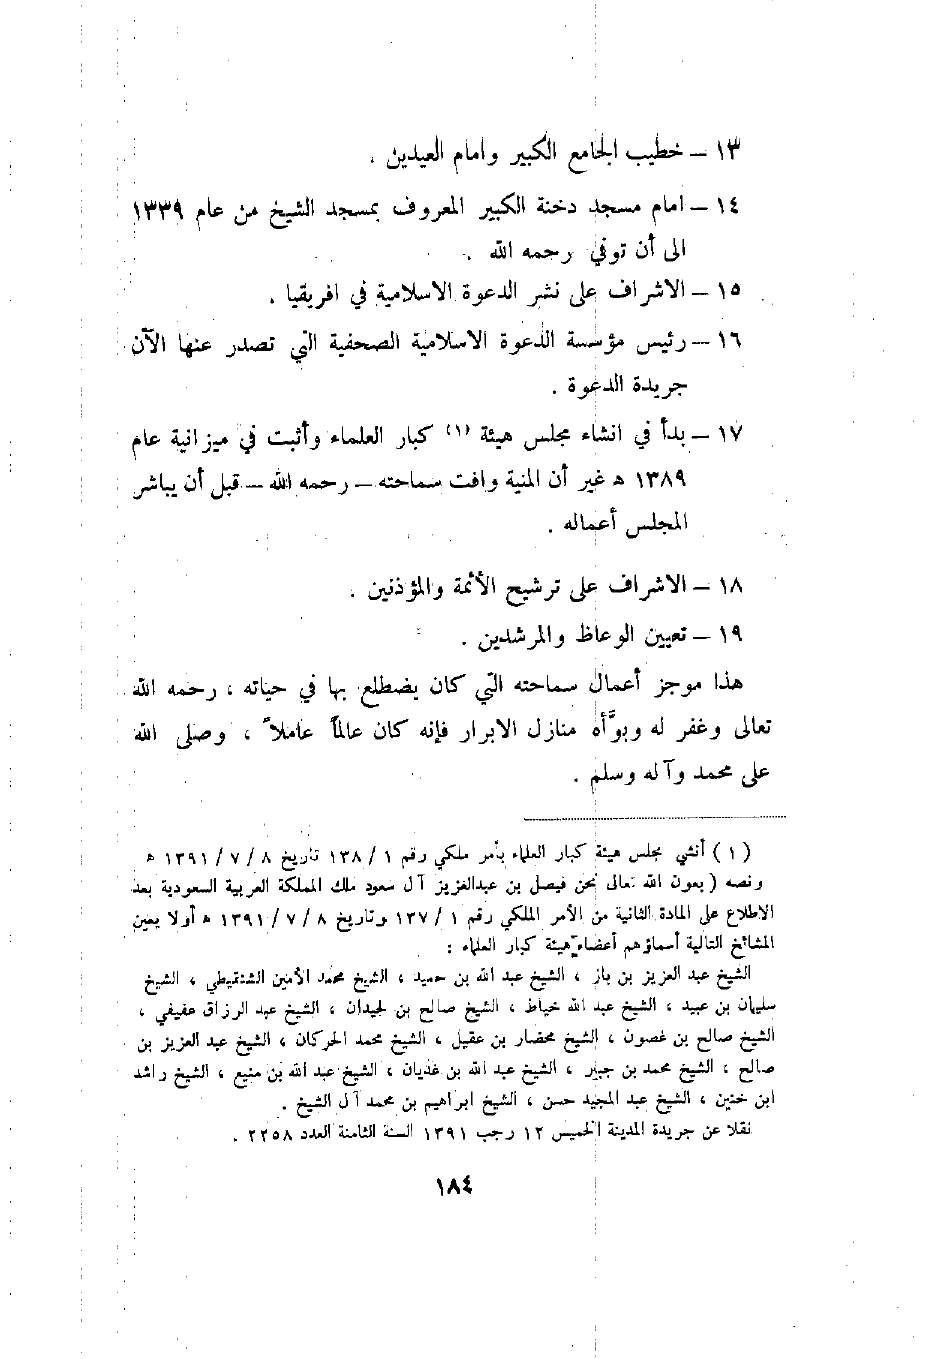 ١٣ – خطيب الجامع الكبير وامام العيدين .
١٤ – امام مسجد دخنة الكبير المعروف بمسجد الشيخ من عام ١٣٣٩
الى أن توفي رحمه الله .
١٥ – الاشراف على نشر الدعوة الاسلامية في افريقيا .
١٦ – رئيس مؤسسة الدعوة الاسلامية الصحفية التي تصدر عنها الآن
جريدة الدعوة .
١٧ – بدأ في انشاء مجلس هيئة (١) كبار العلماء وأثبت في ميزانية عام
١٣٨٩ ه غير أن المنية وافت سماحته – رحمه الله – قبل أن يباشر
المجلس أعماله .
١٨ – الاشراف على ترشيح الأئمة والمؤذنين .
١٩ – تعيين الوعاظ والمرشدين .
هذا موجز أعمال سماحته التي كان يضطلع بها في حياته ، رحمه الله
تعالى وغفر له وبوَّأه منازل الابرار فإنه كان عالماً عاملاً ، وصلى الله
على محمد وآله وسلم .
(١) أنشي مجلس هيئة كبار العلماء بأمر ملكي رقم ١٣٨/١ تاريخ ٨ / ٧ / ١٣٩١ ه
ونصه ( بعون الله تعالى نحن فيصل بن عبدالعزيز آل سعود ملك المملكة العربية السعودية بعد
الاطلاع على المادة الثانية من الأمر الملكي رقم ١٣٧/١ وتاريخ ٨ / ٧ / ١٣٩١ ه أولا يعين
المشائخ التالية أسماؤهم أعضاء هيئة كبار العلماء :
الشيخ عبد العزيز بن باز ، الشيخ عبد الله بن حميد ، الشيخ محمد الأمين الشنقيطي ، الشيخ
سليمان بن عبيد ، الشيخ عبد الله خياط ، الشيخ صالح بن لحيدان ، الشيخ عبد الرزاق عفيفي ،
الشيخ صالح بن غصون ، الشيخ محضار بن عقيل ، الشيخ محمد الحركان ، الشيخ عبد العزيز بن
صالح ، الشيخ محمد بن جبير ، الشيخ عبد الله بن غذيان ، الشيخ عبد الله بن منيع ، الشيخ راشد
ابن خنين ، الشيخ عبد المجيد حسن ، الشيخ ابراهيم بن محمد آل الشيخ .
نقلا عن جريدة المدينة الخميس ١٢ رجب ١٣٩١ السنة الثامنة العدد ٢٢٥٨ .
١٨٤